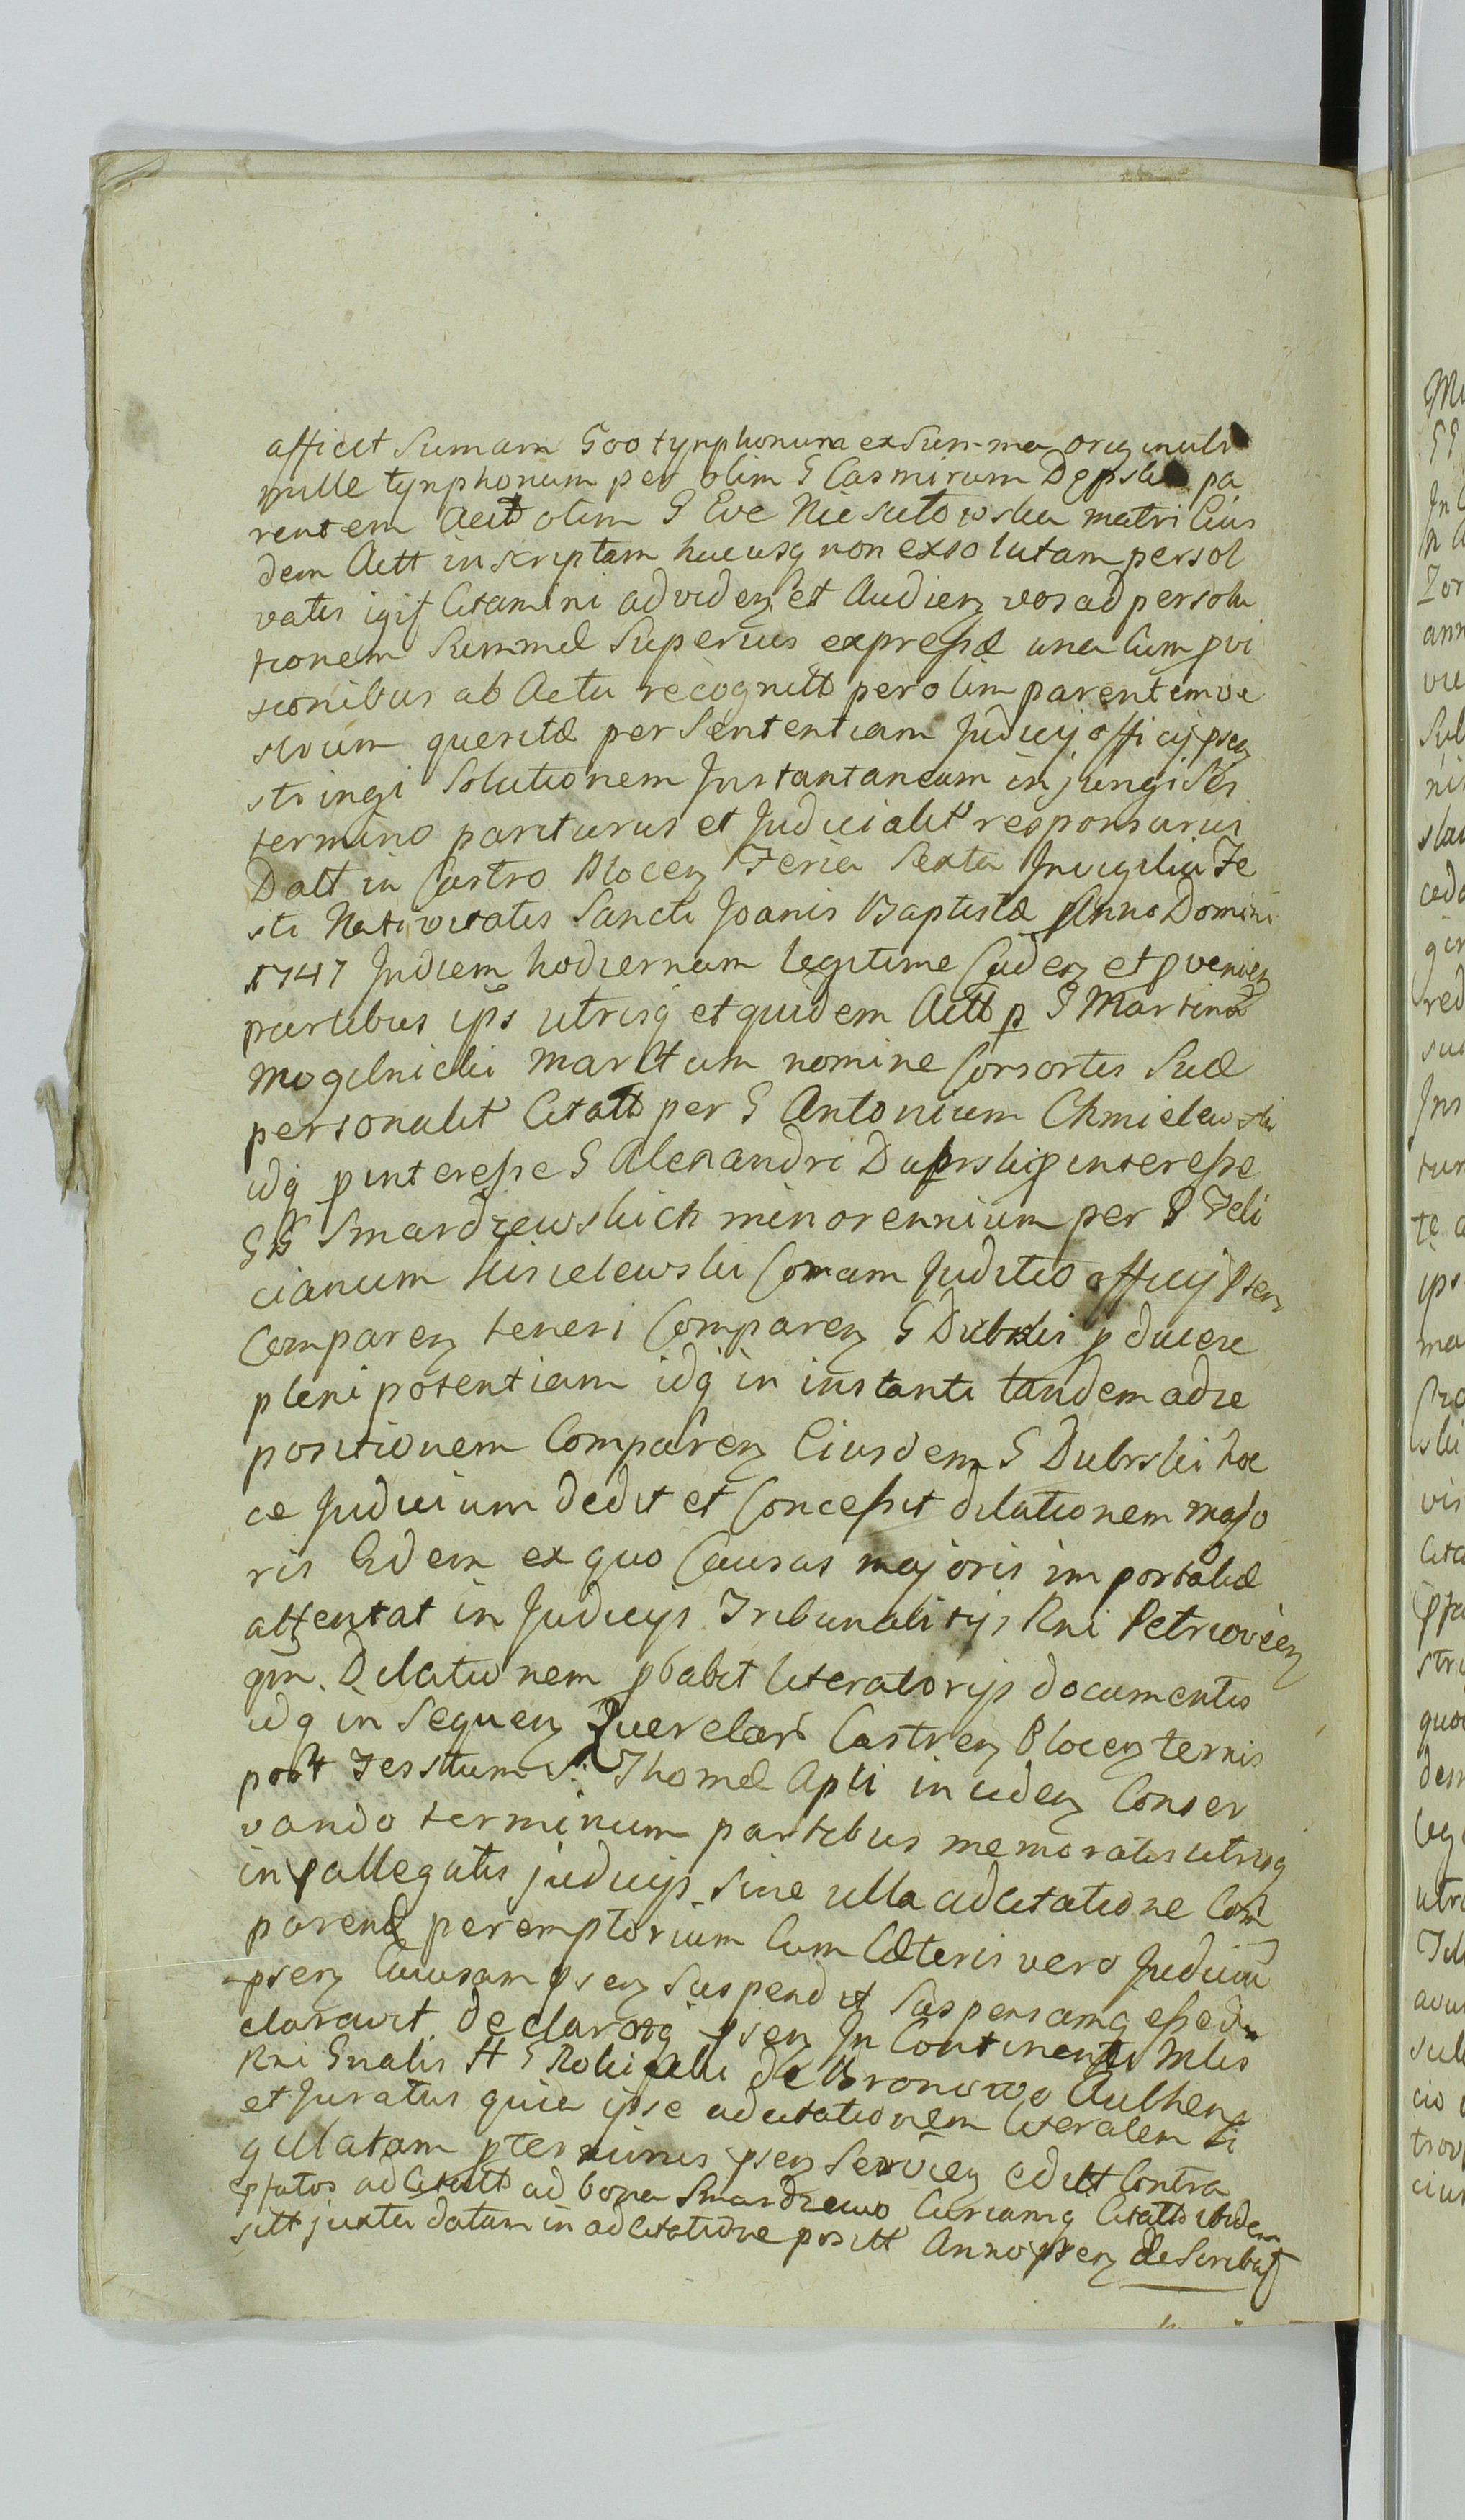 afficit Sumam 500 tynphonum ex Summa originali
mille tynphonum per olim G Casmirum pa
rentem Actt olim G Eve Niesułowska matri Eius
dem Actt inscriptam hucusq non exsolutam persol
vatis igit Citamini ad viden et Audien vos ad persolu
tionem Summæ Superius expressæ una Cum pvi
sionibus ab Actu recognitt per olim parentem ve
strum quesitæ per Sententiam Judicij officij psen
stringi Solutionem Instantaneam injungi Sitis
termino pariturus et Judicialit responsurus
Datt in Castro Plocen Feria Sexta In vigilia Fe
sti Nativitatis Sancti Joanis Baptistæ Anno Domini
1747 In diem hodiernam legitime Caden et pvenien
partibus ips utrisq et quidem Actt p G Martinū
Mogilnicki maritum nomine Consortis Suæ
personalit Citatt per G Antonium Chmielewski
idq p interesse G Alexandri p interesse
GG Smardzewskich minorennium per G Feli
cianum Kisielewski Coram Juditio officij psen
Comparen teneri Comparen G Dubski p ducere
plenipotentiam idq in instanti tandem ad re
positionem Comparen Eiusdem G Dubski hoc
ce Judicium dedit et Concessit dilationem majo
ris Eidem ex quo Causas majoris importatiæ
attentat in Judicijs Tribunalitijs Rni Petricovien
qm Dilationem pbabit literatorijs documentis
idq in Sequen Querelar Castren Plocen ternis
post Festtum S. Thomæ Apli inciden Conser
vando terminum partibus memoratis utrisq
in pallegatis judicijs sine ulla adcitatione Com
parend peremptorium Cum Cæteris vero Judicium
psen Causam psen Suspendit Suspensamq esse de
claravit declaratq psen In Continenti Mlis
Rni Gnalis H G de Bronowo Authen
et Juratus quia ipse adcitationem literalem si
gillatam p terminis psen Servien edidit Contra
pfatos adCitatt ad bona Smardzewo Curiamq Citatt ibidem
sitt juxta datam in adCitatione positt Anno psen de Scribit